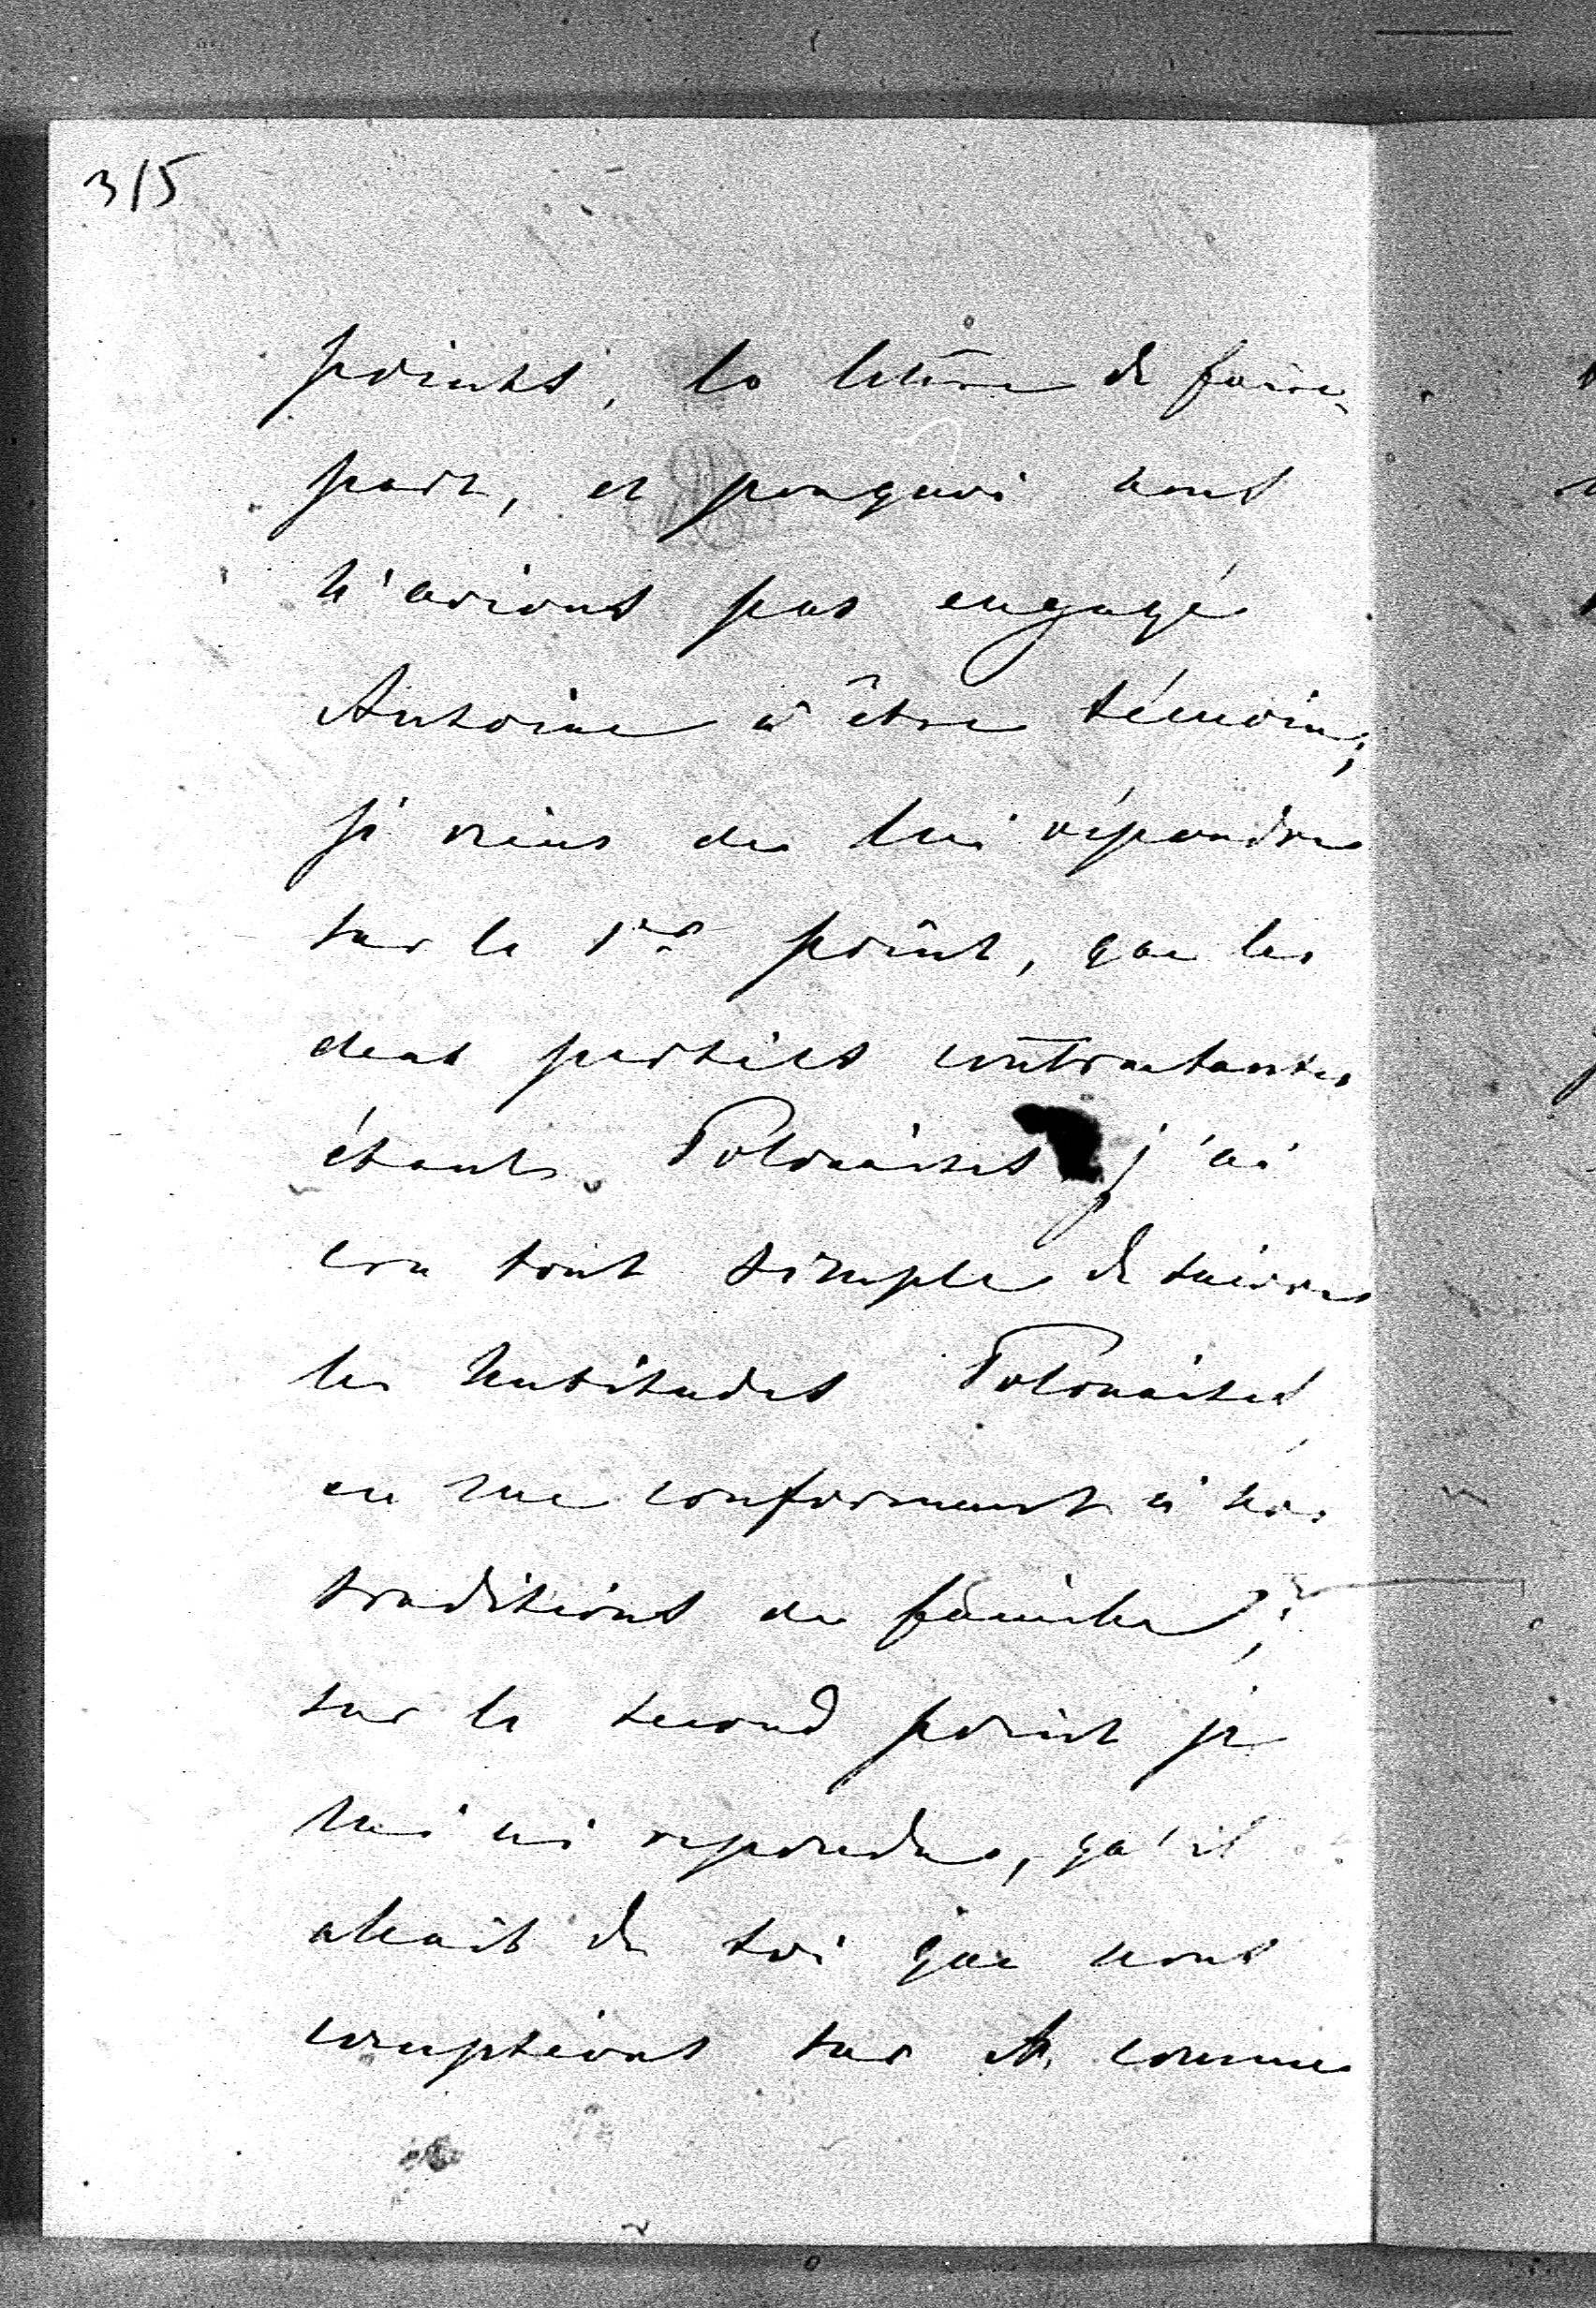 315
points, la lettre de faire
part, et pourquoi nous
n'avions pas engagé
Antoine à être témoin;
je viens de lui répondre
sur le 1er point, que les
deux parties contractantes
étant Polonaises j'ai
cru tout simple de suivre
les habitudes Polonaises,
en me conformant à nos
traditions de famille;
sur le second point je
lui ai répondu, qu'il
allait de soi que nous
comptions sur A. comme